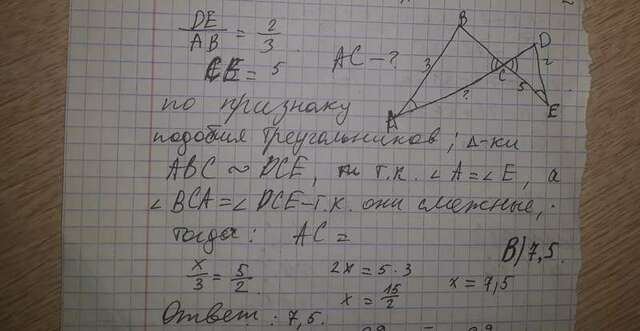 DE/AB = 2/3
CE = 5
AC - ?
B
D
3
2
C
5
?
A
E
по признаку
подобия треугольников; Δ-ки
ABC ~ DCE, т.к. ∠A=∠E, а
∠BCA=∠DCE-т.к. они смежные,
тогда: AC =
В) 7,5.
x/3 = 5/2 2x = 5·3 x = 7,5
x = 15/2
Ответ: 7,5.